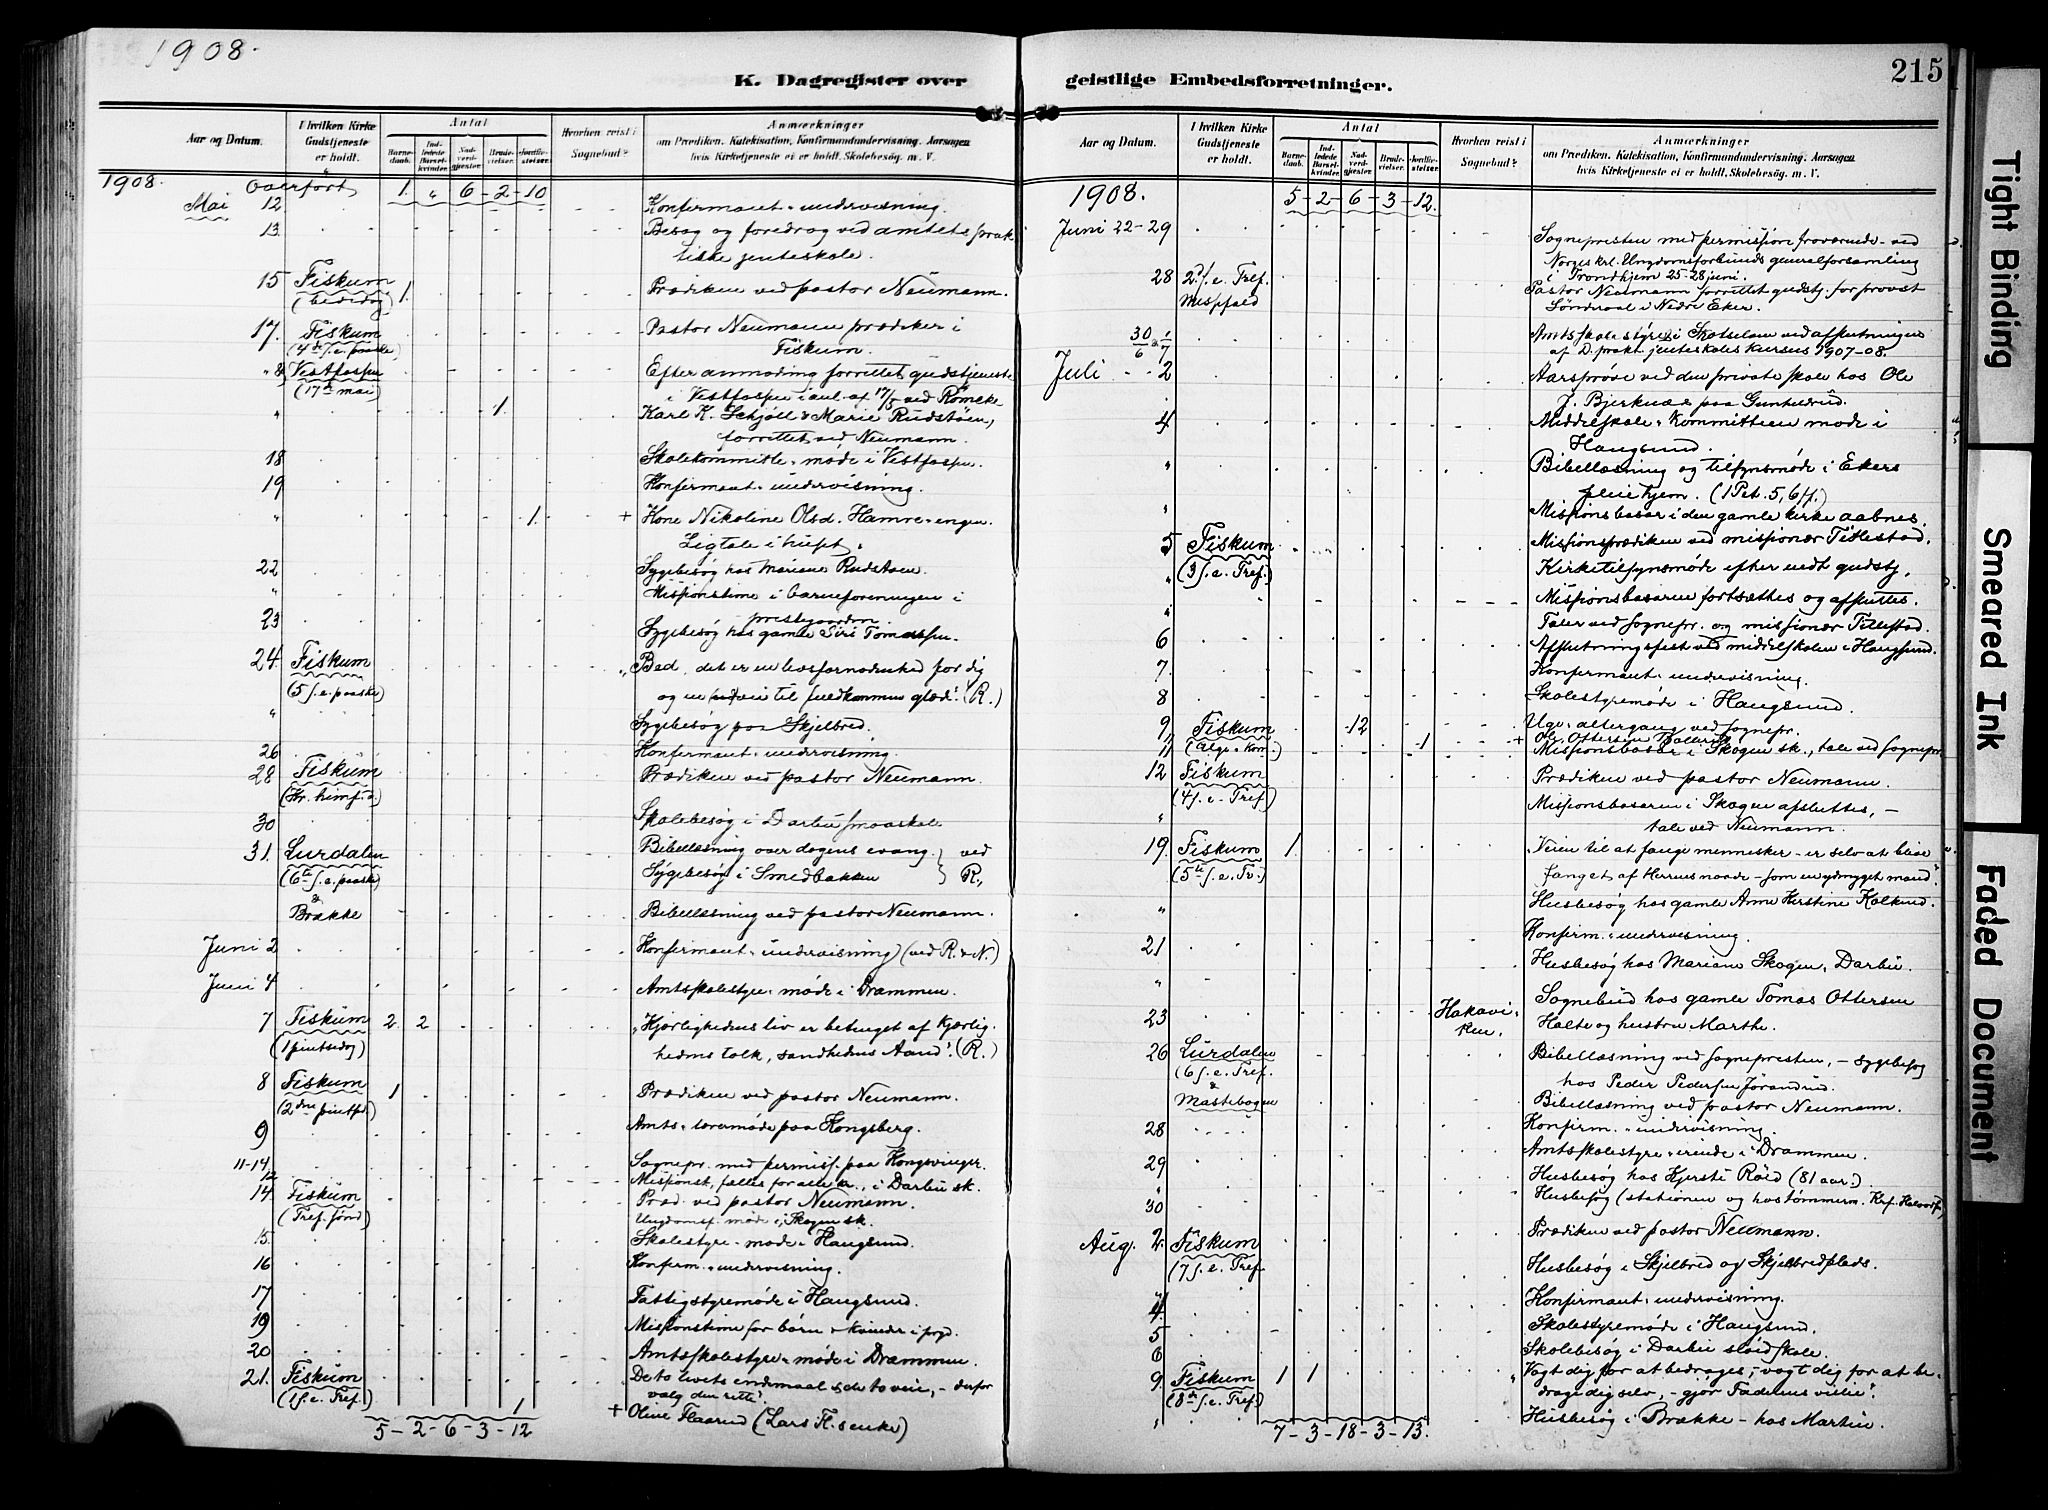 1908.
K. Dagregister over
Aar og Datum.
I hvilken Kirke Gudstjeneste er holdt.
Antal
Barne-daab.
Ind-ledede Barsel-kvinder.
Nad-verd-gjester.
Brude-vielser.
Jordfæ-stelser.
Hvorhen reist i Sognebud?
Anmærkninger
om Prædiken, Katekisation, Konfirmandundervisning, Aarsagen
hvis Kirketjeneste ei er holdt, Skolebesøg m. V.
1908. Overført 1. " 6 - 2 - 10
Mai 12 Konfirmant-undervisning.
13. Besøg og foredrag ved amtets prak-
tiske jenteskole.
15 Fiskum 1. Prædiken ved pastor Neumann.
(bededag)
17. Fiskum Pastor Neumann prædiker i
(4de s. e. paaske) Fiskum.
" & Vestfossen Efter anmodning forrettet gudstjeneste
(17de mai) i Vestfossen i anl. af 17/5 ved Romcke
" 1. Karl K. Schjøll & Marie Rudstøen,
forrettet ved Neumann.
18 Skolekommitte-møde i Vestfossen.
19 Konfirmant-undervisning.
" 1. + Kone Nikoline Olsd. Hamre-engen.
Ligtale i huset.
22 Sygebesøg hos Mariane Rudstøen.
" Missionstime i barneforeningen i
prestegaarden.
23 Sygebesøg hos gamle Siri Tomassen.
24. Fiskum "Bed, det er en livsfornødenhed for dig
(5 s. e. paaske) og en vei til fuldkommen glæde". (R.)
" Sygebesøg paa Skjelbred.
26 Konfirmant-undervisning.
28 Fiskum Prædiken ved pastor Neumann.
(Kr. himf. d.)
30 Skolebesøg i Darbu smaaskole
31. Lurdalen Bibellæsning over dagens evang. } ved
(6te s. e. paaske) Sygebesøg i Smedbakken } R.
& Brække Bibellæsning ved pastor Neumann.
Juni 2 Konfirmant-undervisning (ved R. & N.)
Juni 4 Amtsskolestyre-møde i Drammen.
7 Fiskum 2 2 "Kjærlighedens liv er betinget af kjærlig-
(1 pintsedag) hedens tolk, sandhedens Aand". (R.)
8 Fiskum 1 Prædiken ved pastor Neumann.
(2den pintsed.)
9 Amts-lærermøde paa Kongsberg.
11-14. Sognepr. med permiss. paa Kongsvinger.
12 Missionst., fælles for alle kr., i Darbu sk.
14. Fiskum Præd. ved pastor Neumann.
(Tref. sønd) Ungdomsf. møde i Skogen sk.
15. Skolestyre-møde i Haugsund.
16 Konfirm.-undervisning.
17 Fattigstyremøde i Haugsund.
19 Missionstime for børn & kvinder i prgd.
20 Amtsskolestyre-møde i Drammen.
21. Fiskum De to livets endemaal & de to veie, - derfor
(1 s. e. Tref.) vælg den rette!
1 + Oline Flaarud (Lars Fl.s enke)
5 - 2 - 6 - 3 - 12
geistlige Embedsforretninger.
215
Aar og Datum.
I hvilken Kirke Gudstjeneste er holdt.
Antal
Barne-daab.
Ind-ledede Barsel-kvinder.
Nad-verd-gjester.
Brude-vielser.
Jordfæ-stelser.
Hvorhen reist i Sognebud?
Anmærkninger
om Prædiken, Katekisation, Konfirmandundervisning, Aarsagen
hvis Kirketjeneste ei er holdt, Skolebesøg m. V.
1908. 5 - 2 - 6 - 3 - 12.
Juni 22-29 Sognepresten med permission fraværende - ved
Norges krl. Ungdomsforbunds generalforsamling
i Trondhjem 25-28 juni.
28 2. s. e. Tref. Pastor Neumann forrettet gudstj. for provst
Messfald Søndraal i Nedre Eker.
30/6 & 1/7 Amtsskolestyret i Skotselven ved afslutningen
af D. prakt. jenteskoles kursus 1907-08.
Juli 2 Aarsprøve ved den private skole hos Ole
J. Bjerknæs paa Gunhildrud.
4 Middelskole-kommitteen møde i
Haugsund.
" Bibellæsning og tilsynsmøde i Ekers
pleiehjem. (1 Pet. 5, 6 ff.)
" Missionsbasar i den gamle kirke aabnes.
5 Fiskum Missionsprædiken ved missionær Titlestad.
" (3 s. e. Tref.) Kirketilsynsmøde efter endt gudstj.
" Missionsbasaren fortsættes og afsluttes.
Taler ved sognepr. og missionær Titlestad.
6 Afslutningsfest ved middelskolen i Haugsund.
7. Konfirmant-undervisning.
8 Skolestyremøde i Haugsund.
9 Fiskum 12 Uge-altergang ved sognepr.
(Alge-Kom.) 1 + Ole Ottersen
11 Missionsbasar i Skogen sk., tale ved sognepr.
12 Fiskum Prædiken ved pastor Neumann.
(4 s. e. Tref)
" Missionsbasaren i Skogen afsluttes, -
tale ved Neumann.
19. Fiskum 1 "Veien til at fange mennesker - er selv at blive
(5te s. e. Tr.) fanget af Herrens naade - som en ydmyget mand".
" Husbesøg hos gamle Anne Kirstine Kolkind.
21 Konfirm.-undervisning.
" Husbesøg hos Mariane Skogen, Darbu.
23 Hakavi-ken. Sognebud hos gamle Tomas Ottersen
Holte og hustru Marthe.
26 Lurdalen Bibellæsning ved sognepresten, - sygebesøg
(6 s. e. Tref. hos Peder Pedersen Jørandrud.
& Mastebogen Bibellæsning ved pastor Neumann.
28 Konfirm.-undervisning.
29 Amtsskolestyre-ærinde i Drammen.
" Husbesøg hos Kjersti Røid (81 aar.)
30 Husbesøg (stationen og hos tømmerm. Krf. Halvorsf.)
Aug. 2. Fiskum Prædiken ved pastor Neumann.
(7 s. e. Tref. Husbesøg i Skjelbred og Skjelbredplads.
4 Konfirmant-undervisning.
5 Skolestyremøde i Haugsund.
6 Skolebesøg i Darbu sløidskole.
9 Fiskum 1 1 "Vogt dig for at bedrages, - vogt dig for at be-
(8de s. e. Tref.) drage dig selv, - gjør Faderens vilie".
" Husbesøg i Brække - hos Martin.
7 - 3 - 18 - 3 - 13.
Tight Binding
Smeared Ink
Faded Document